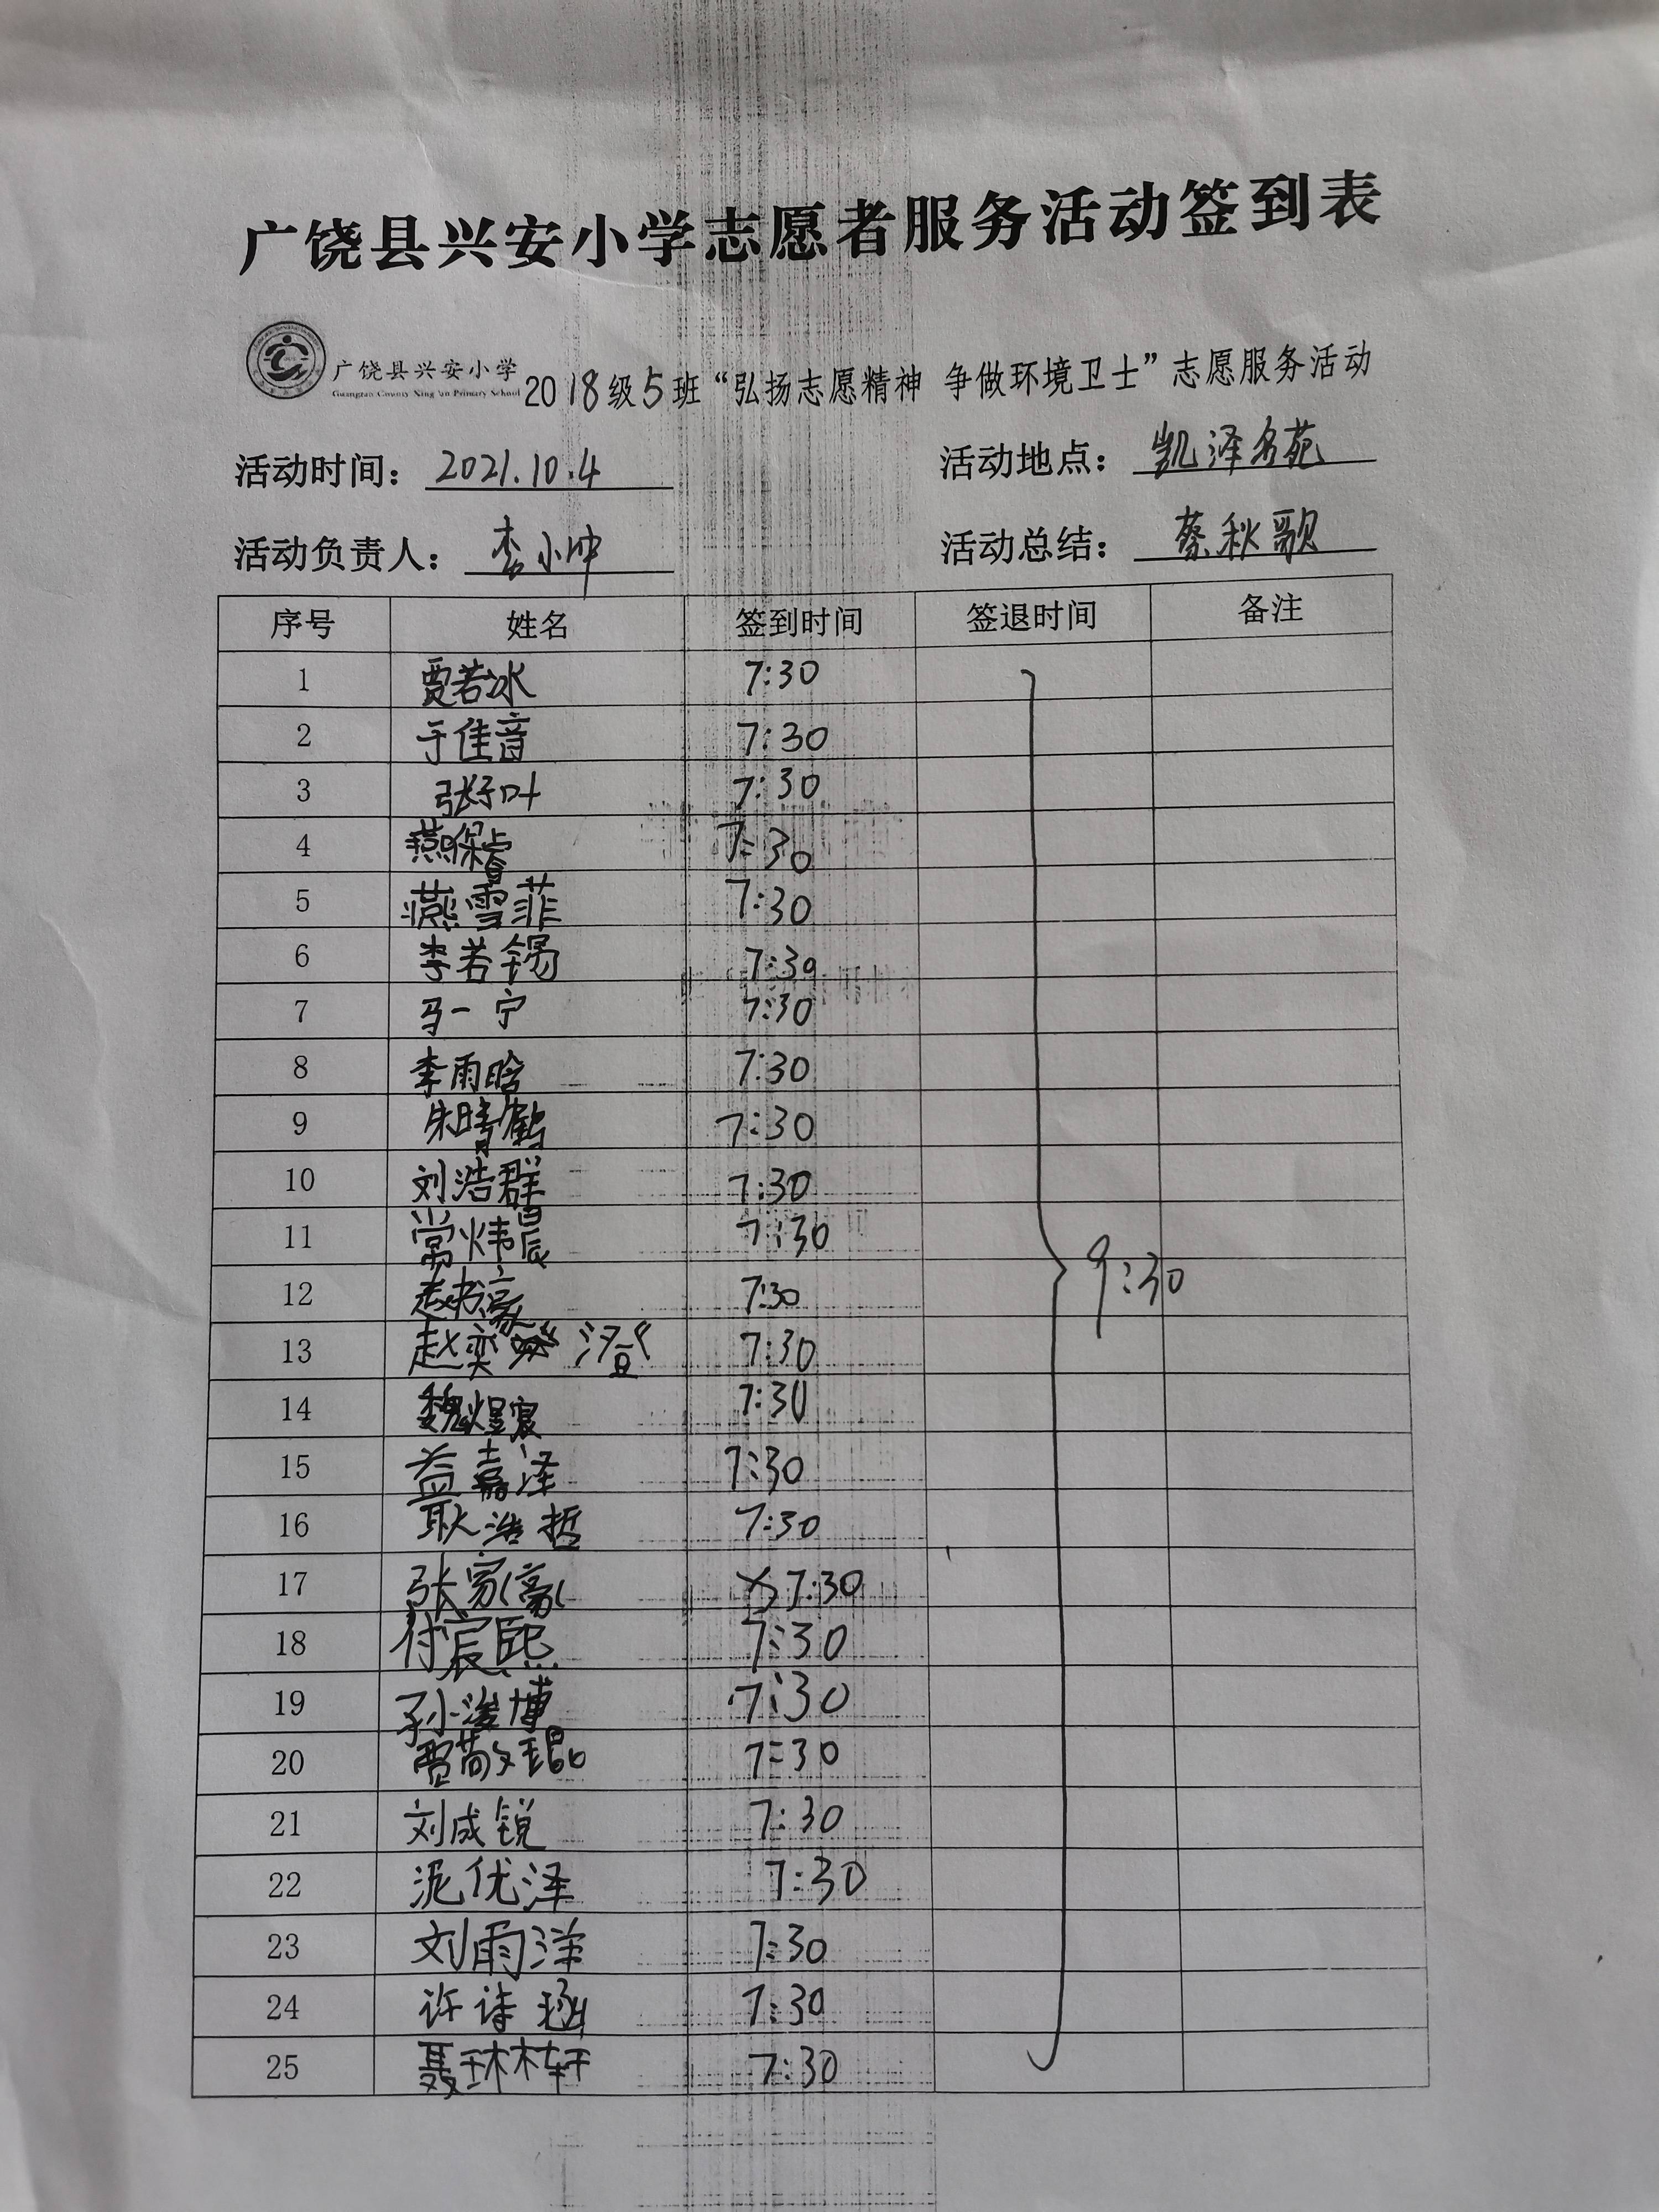 广饶县兴安小学志愿者服务活动签到表
广饶县兴安小学
Guangrao County Xing'an Primary School
2018级5班“弘扬志愿精神 争做环境卫士”志愿服务活动
活动时间：2021.10.4 活动地点：凯泽名苑
活动负责人：李小坤 活动总结：蔡秋歌
序号 姓名 签到时间 签退时间 备注
1 贾若冰 7:30
2 于佳音 7:30
3 张子叶 7:30
4 燕保睿 7:30
5 燕雪菲 7:30
6 李若锡 7:30
7 马一宁 7:30
8 李雨晗 7:30
9 朱晴鹤 7:30
10 刘浩群 7:30
11 常炜晨 7:30
9:30
12 赵书豪 7:30
13 赵奕澄 7:30
14 魏煜宸 7:30
15 益嘉泽 7:30
16 耿浩哲 7:30
17 张家豪 7:30
18 付宸熙 7:30
19 孙浚博 7:30
20 贾敬琨 7:30
21 刘成锐 7:30
22 泥优泽 7:30
23 刘雨洋 7:30
24 许诗涵 7:30
25 聂琳轩 7:30